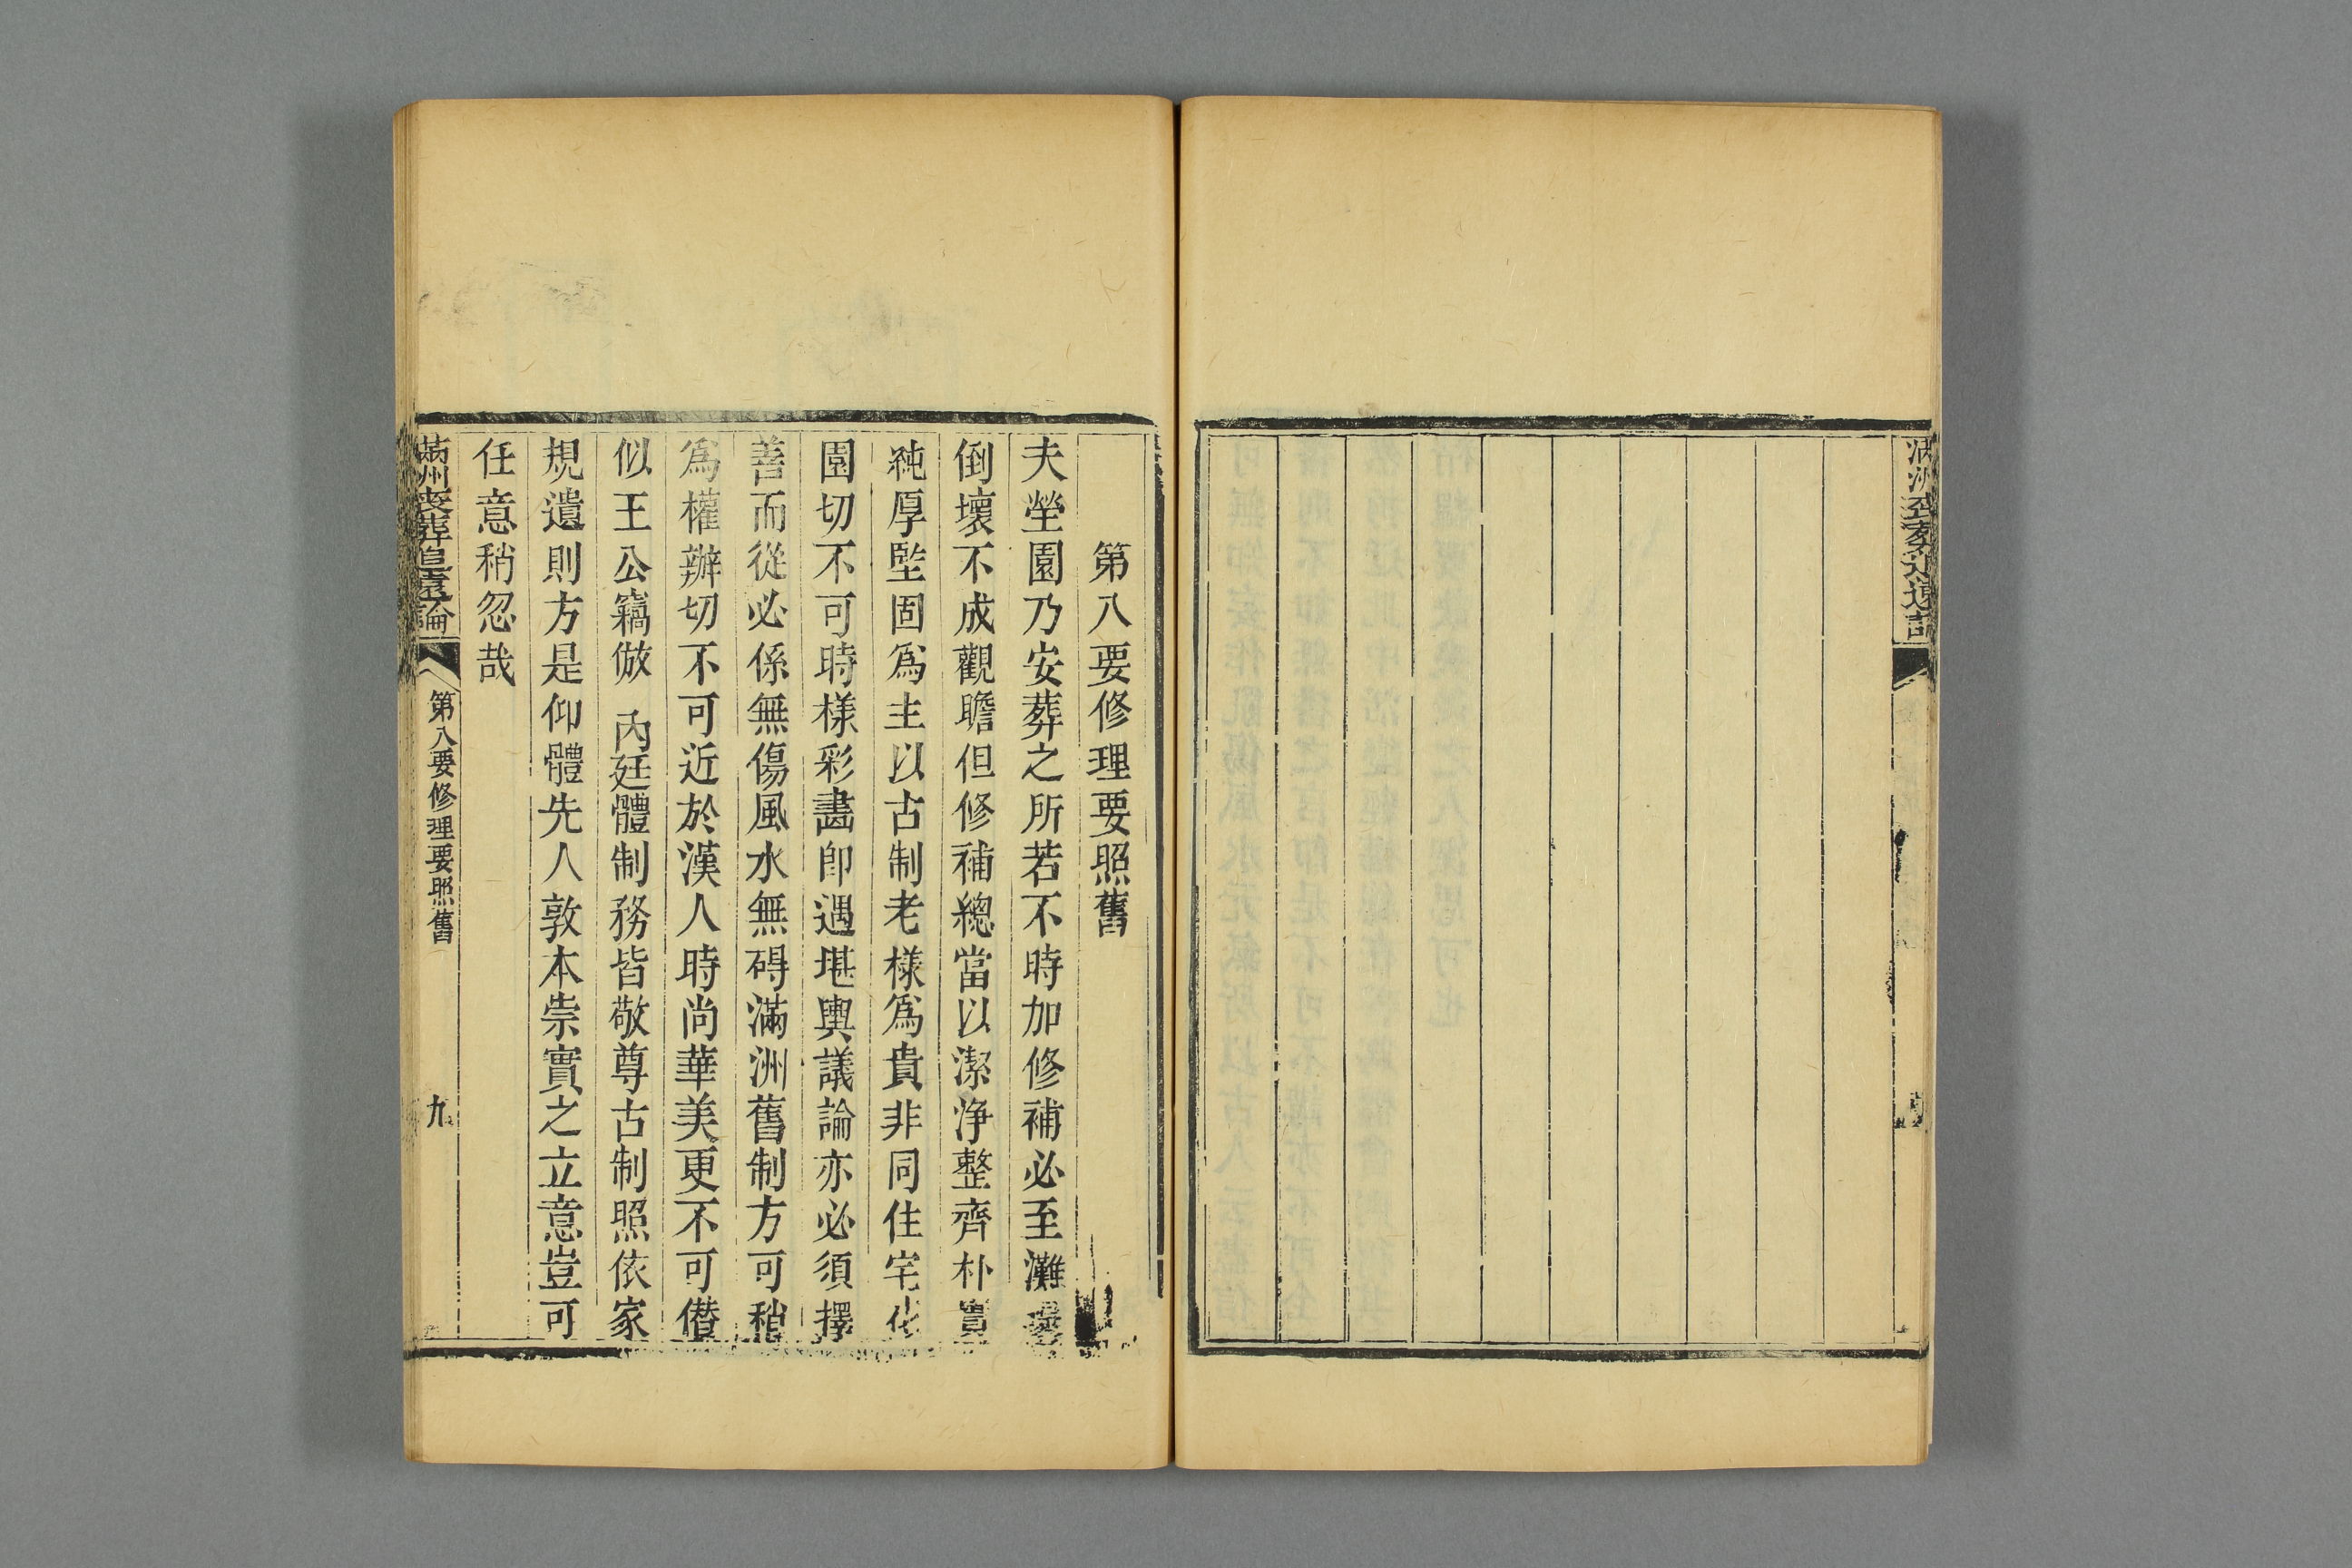 第八要修理要照舊
夫塋園乃安葬之所若不時加修補必至灘
倒壞不成觀瞻但修補總當以潔浄整齊朴實
純厚堅固爲主以古制老樣爲貴非同住宅花
園切不可時樣彩畵卽遇堪輿議論亦必須擇
善而從必係無傷風水無碍滿洲舊制方可稍
爲權辦切不可近於漢人時尚華美更不可僭
似王公竊倣 內廷體制務皆敬尊古制照依家
規遺則方是仰體先人敦本崇實之立意豈可
任意稍忽哉
滿州喪葬追遠論
第八要修理要照舊
九